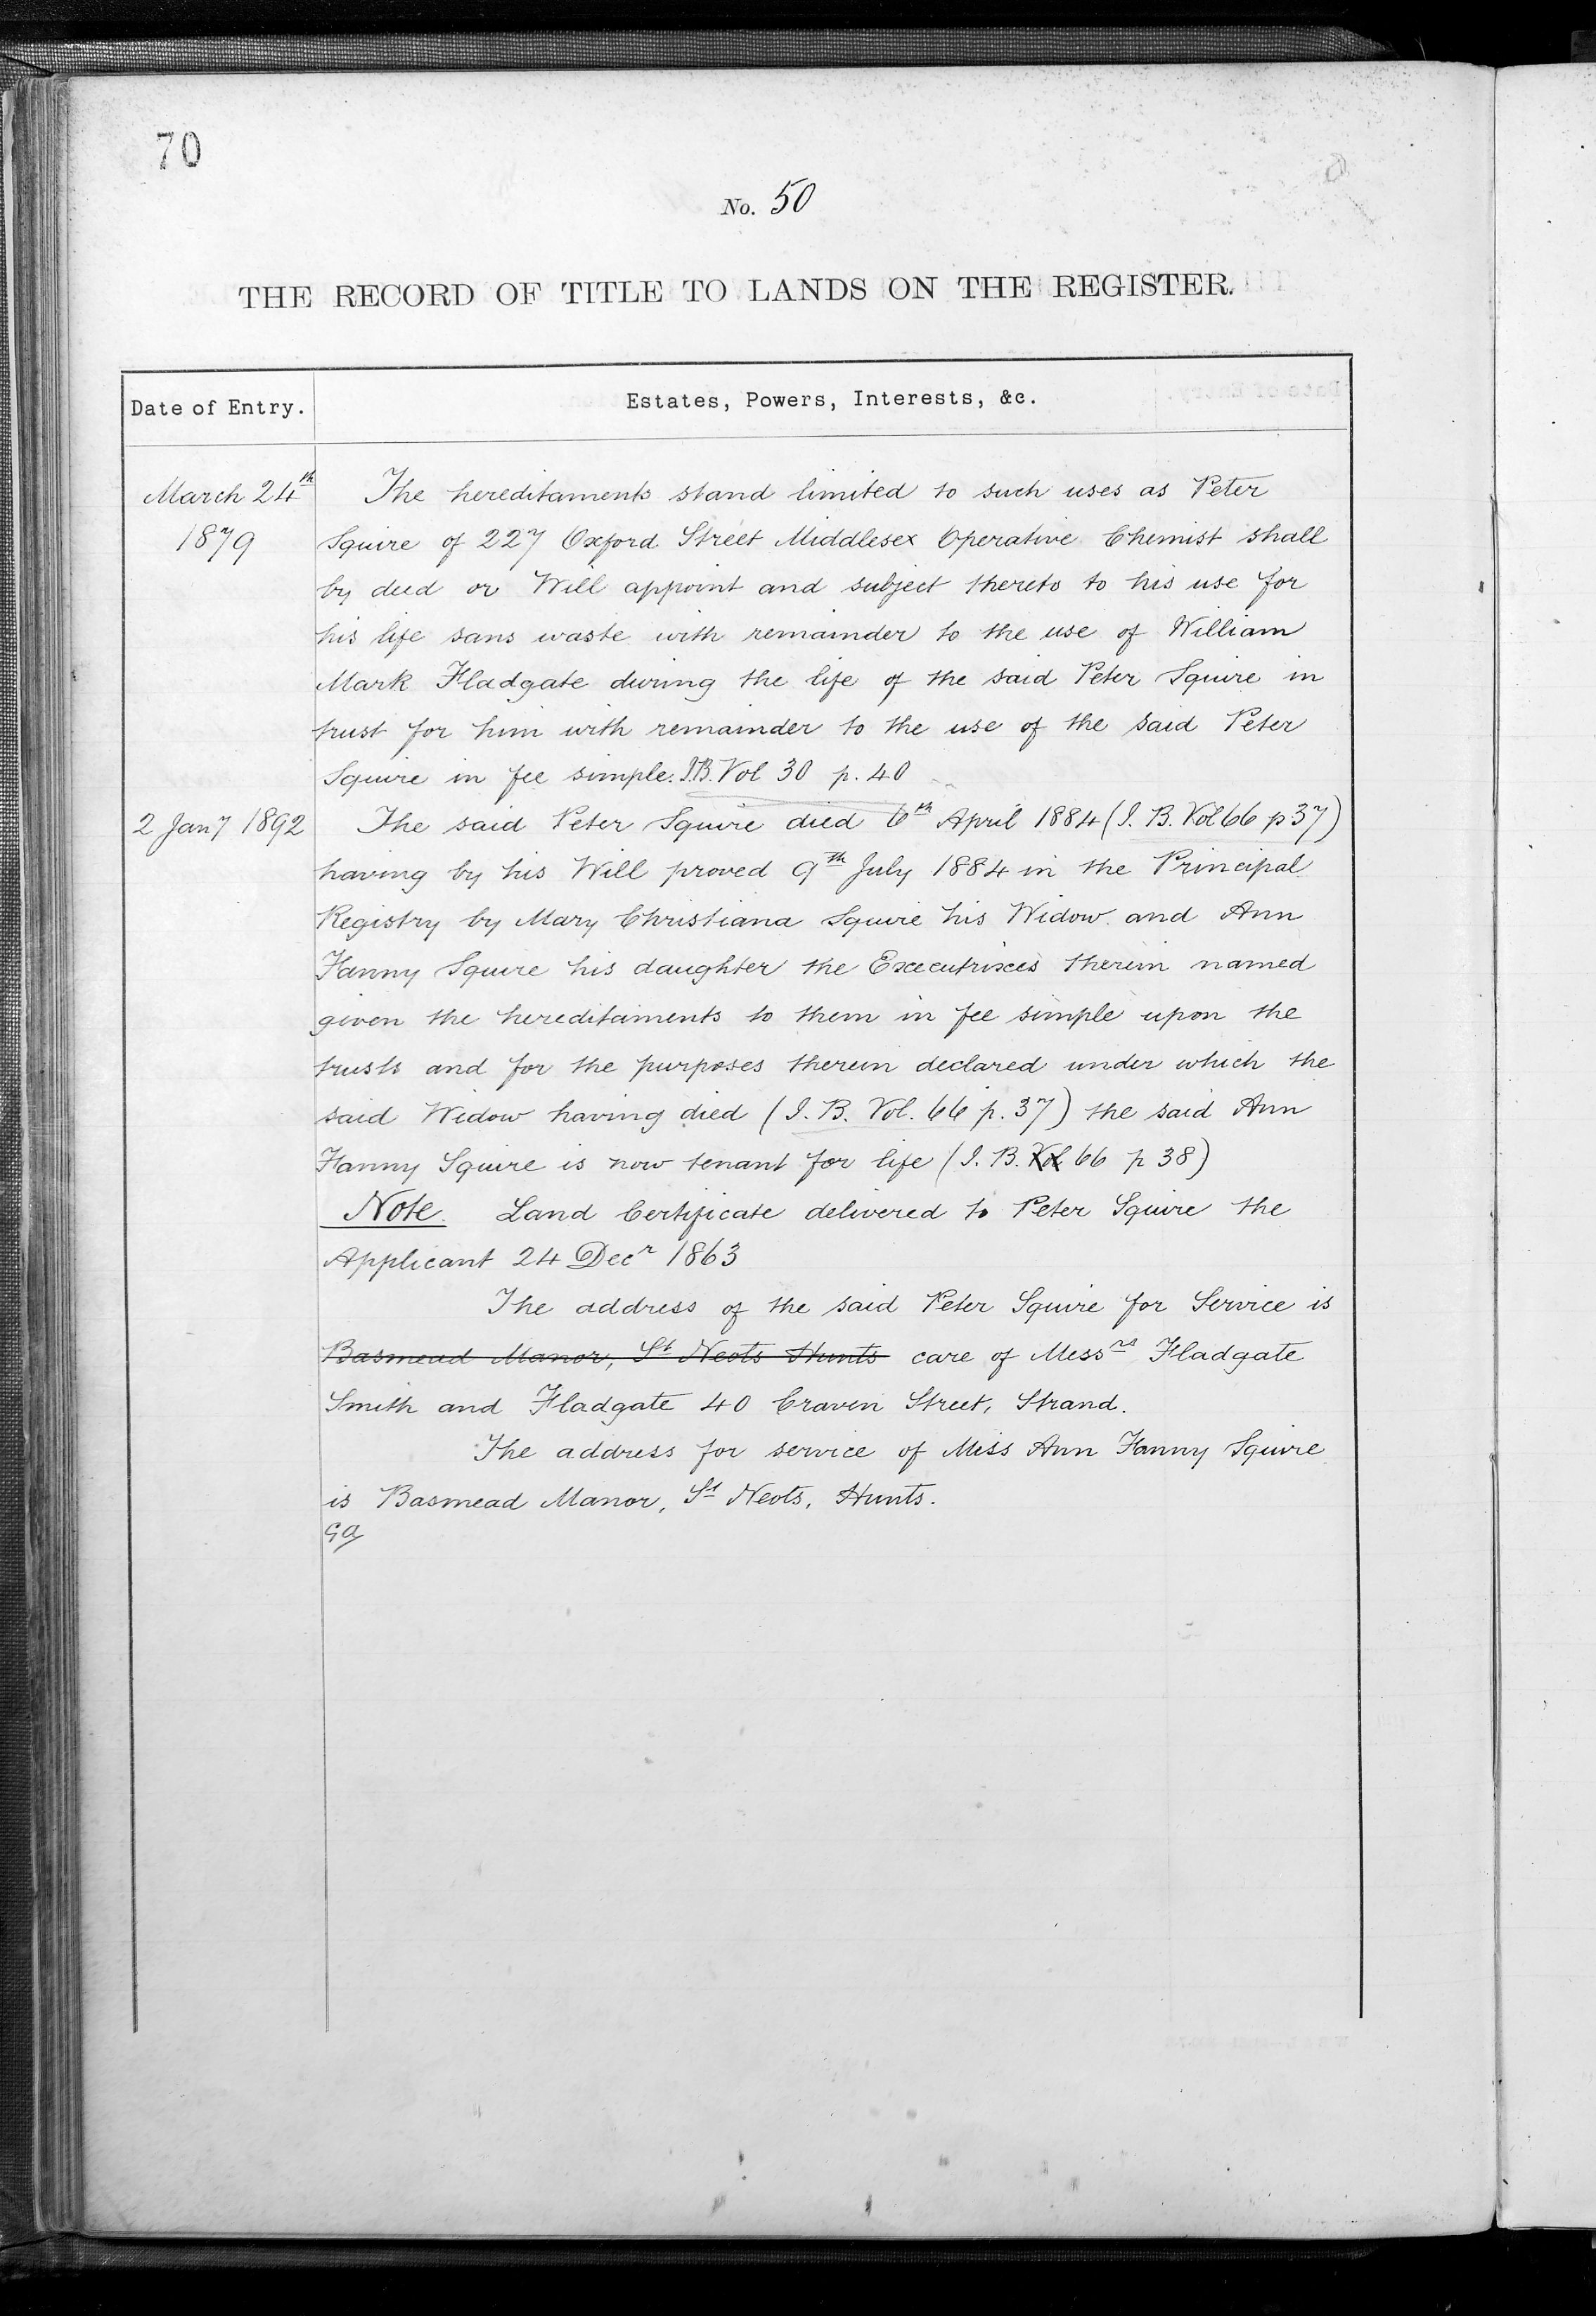 70
No. 50
THE RECORD OF TITLE TO LANDS ON THE REGISTER.
Date of Entry.
Estates, Powers, Interests, &c.
March 24th
1879
The hereditaments stand limited to such uses as Peter
Squire of 227 Oxford Street Middlesex Operative Chemist shall
by deed or Will appoint and subject thereto to his use for
his life sans waste with remainder to the use of William
Mark Fladgate during the life of the said Peter Squire in
trust for him with remainder to the use of the said Peter
Squire in fee simple. I.B. Vol 30 p. 40
2 Jany 1892
The said Peter Squire died 6th April 1884 (I. B. Vol 66 p 37)
having by his Will proved 9th July 1884 in the Principal
Registry by Mary Christiana Squire his Widow and Ann
Fanny Squire his daughter the Executrixes therein named
given the hereditaments to them in fee simple upon the
trusts and for the purposes therein declared under which the
said Widow having died (I. B. Vol. 66 p. 37) the said Ann
Fanny Squire is now tenant for life (I. B. Vol 66 p 38)
Note. Land Certificate delivered to Peter Squire the
Applicant 24 Decr 1863
The address of the said Peter Squire for Service is
Basmead Manor, St Neots Hunts care of Messrs Fladgate
Smith and Fladgate 40 Craven Street, Strand.
The address for service of Miss Ann Fanny Squire
is Basmead Manor, St Neots, Hunts.
GA